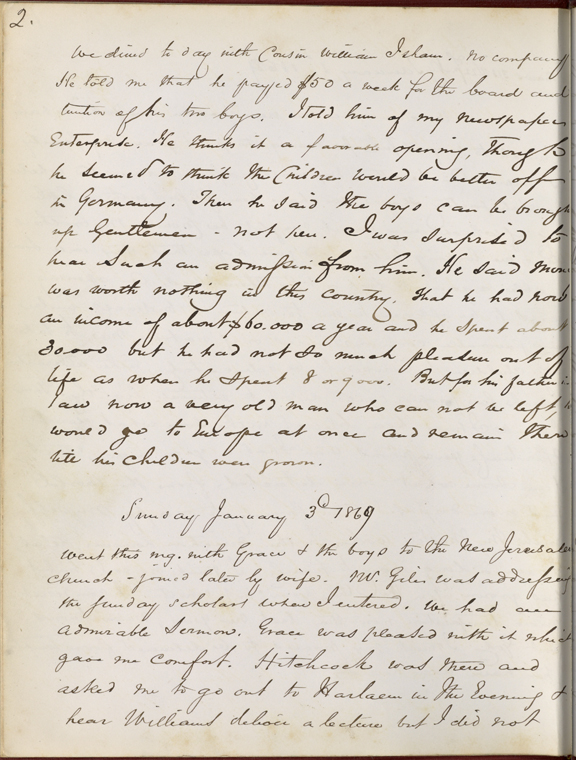 2.
We dined to day with Cousin William Isham. No company
He told me that he payed $50 a week for the board and
tuition of his two boys. I told him of my newspaper
Enterprise. He thinks it a favorable opening, though
he seemed to think the Children would be better off
in Germany. There he said the boys can be brough
up Gentlemen - not here. I was surprised to
hear such an admission from him. He said mone
was worth nothing in this country. That he had now
an income of about $60.000 a year and he spent about
30000 but he had not so much pleasure out of
life as when he spent 8 or 9000. But for his father in
law now a very old man who can not be left, h
would go to Europe at once and remain there
till his children were grown.
Sunday January 3d 1869
Went this mg. with Grace & the boys to the New Jerusale
church - joined later by wife. Mr. Giles was addressing
the Sunday scholars when I entered. We had an
admirable Sermon. Grace was pleased with it which
gave me comfort. Hitchcock was there and
asked me to go out to Harlaem in the Evening &
hear Williams deliver a lecture but I did not